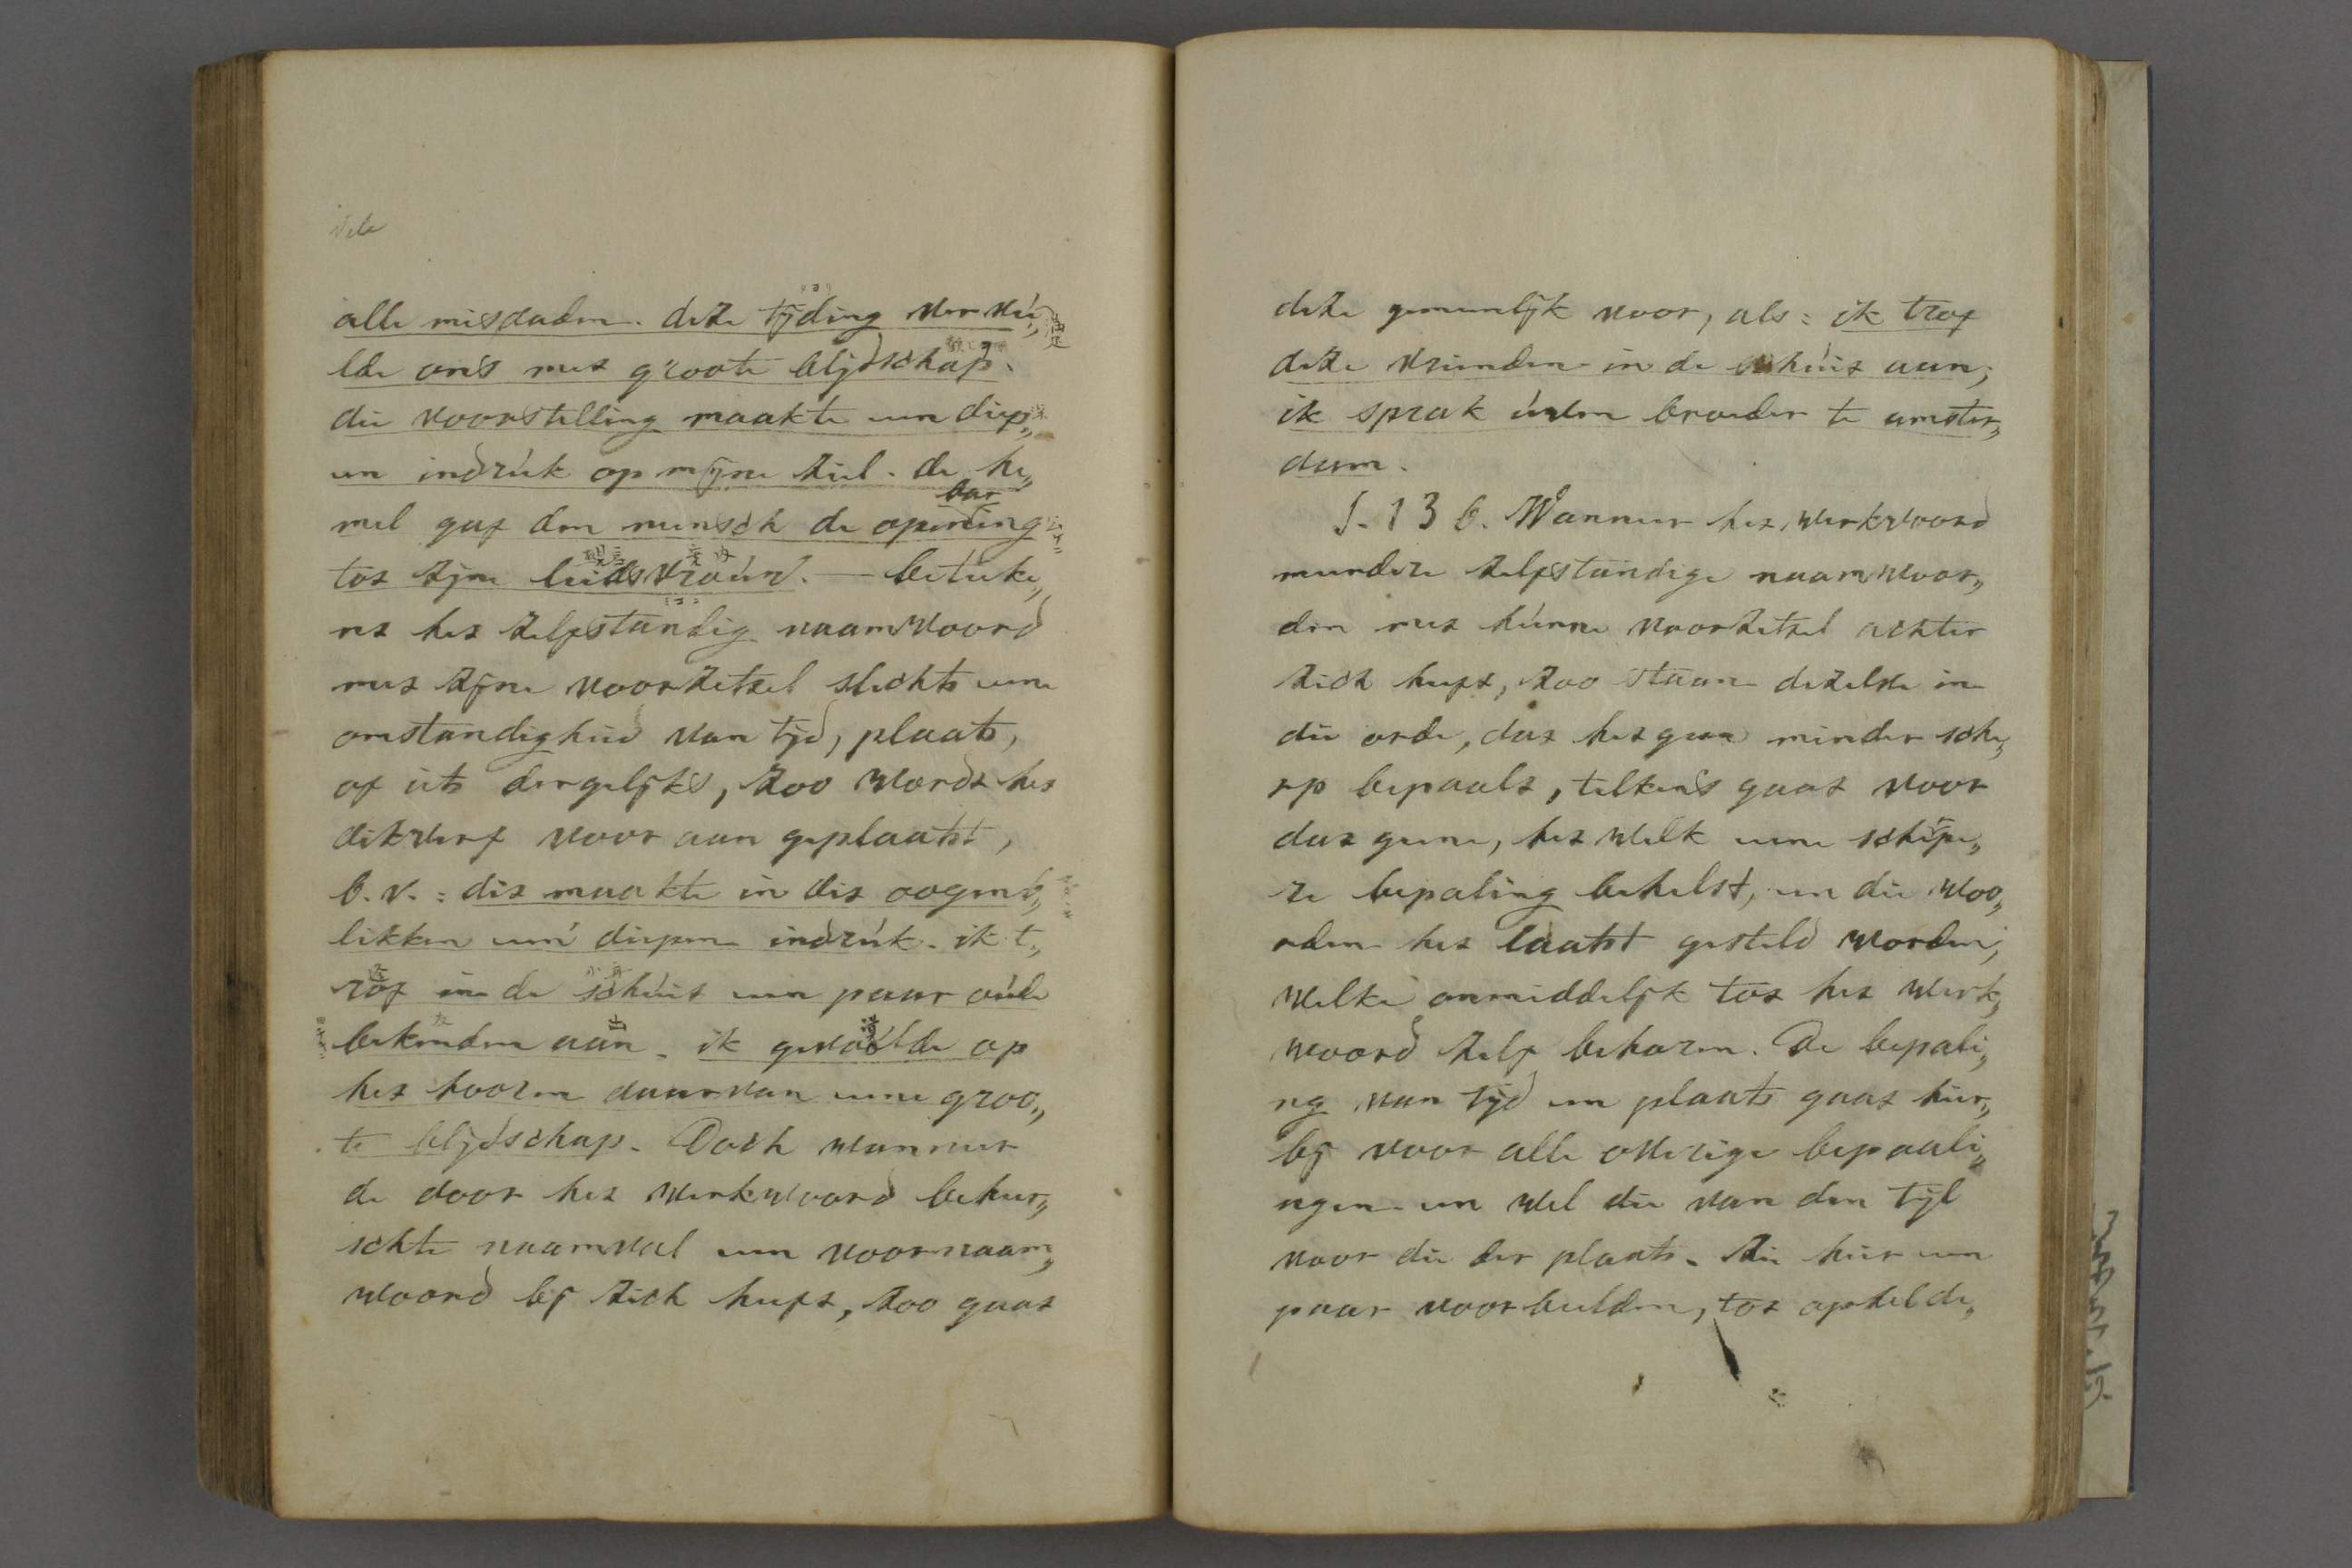 alle misdaden. deze tijding vervú„
lde ons met groote blijdschap.
die voorstelling maakte een diep„
en indrúk op mijne ziel. de he„
mel gaf den mensch de openbaring
tot zijne leidsvroúw. — beteeke„
nt het zelfstandig naamwoord
met zijne voorzetsel slechts eene
omstandigheid van tijd, plaats,
of iets dergelijks, zoo wordt het
dikwerf voor aan geplaatst,
b. v. : dit maakte in dit oogenb„
likken een diepen indrúk. ik t„
rof in de schúit een paar oúde
bekenden aan. ik gevoélde op
het hooren daarvan eene groo„
te blijdschap. Doch wanneer
de door het werkwoord beheer„
schte naamval een voornaam„
woord bij zich heeft, zoo gaat
deze gemeenlijk voor, als : ik trof
deze vrienden in de schúit aan;
ik sprak úwen broeder te amster„
dam.
§. 136. Wanneer het werkwoord
meerdere zelfstandige naamwoor„
den met húnne voorzetsel achter
zich heeft, zoo staan dezelve in
die orde, dat het geen minder sche„
rp bepaalt, telkens gaat voor
dat geene, het welk eene schepe„
re bepaling behelst, en die woo„
rden het laatst gesteld worden,
welke onmiddelijk tot het werk„
woord zelf behoren. De bepali„
ng van tijd en plaats gaat hier„
bij voor alle overige bepaali„
ngen en wel die van den tijd
voor die der plaats. Zie hier een
paar voorbeelden, tot ophelde„